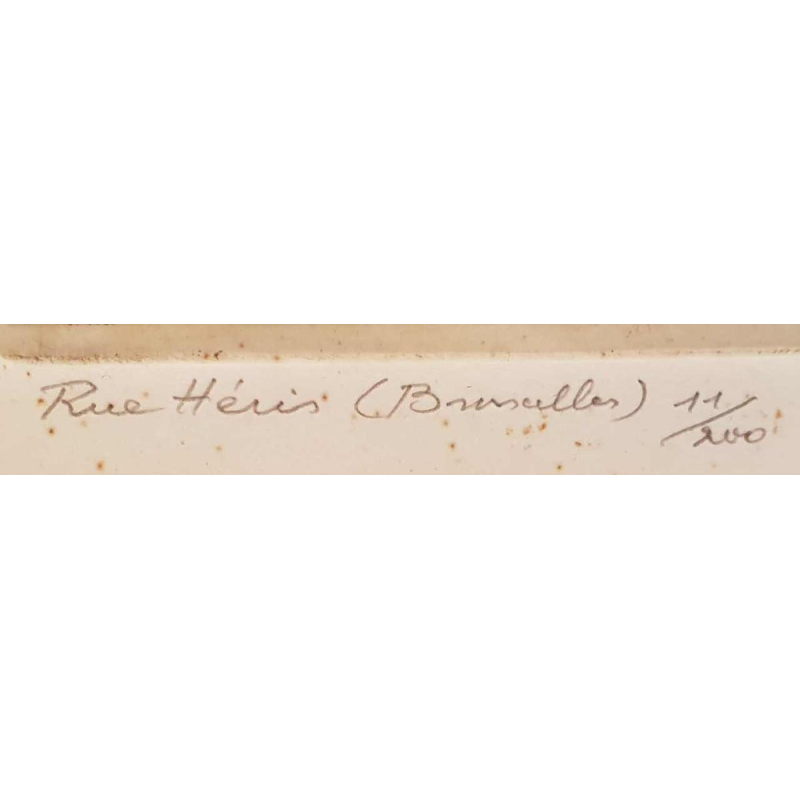 Rue Héris (Bruxelles) 11/200